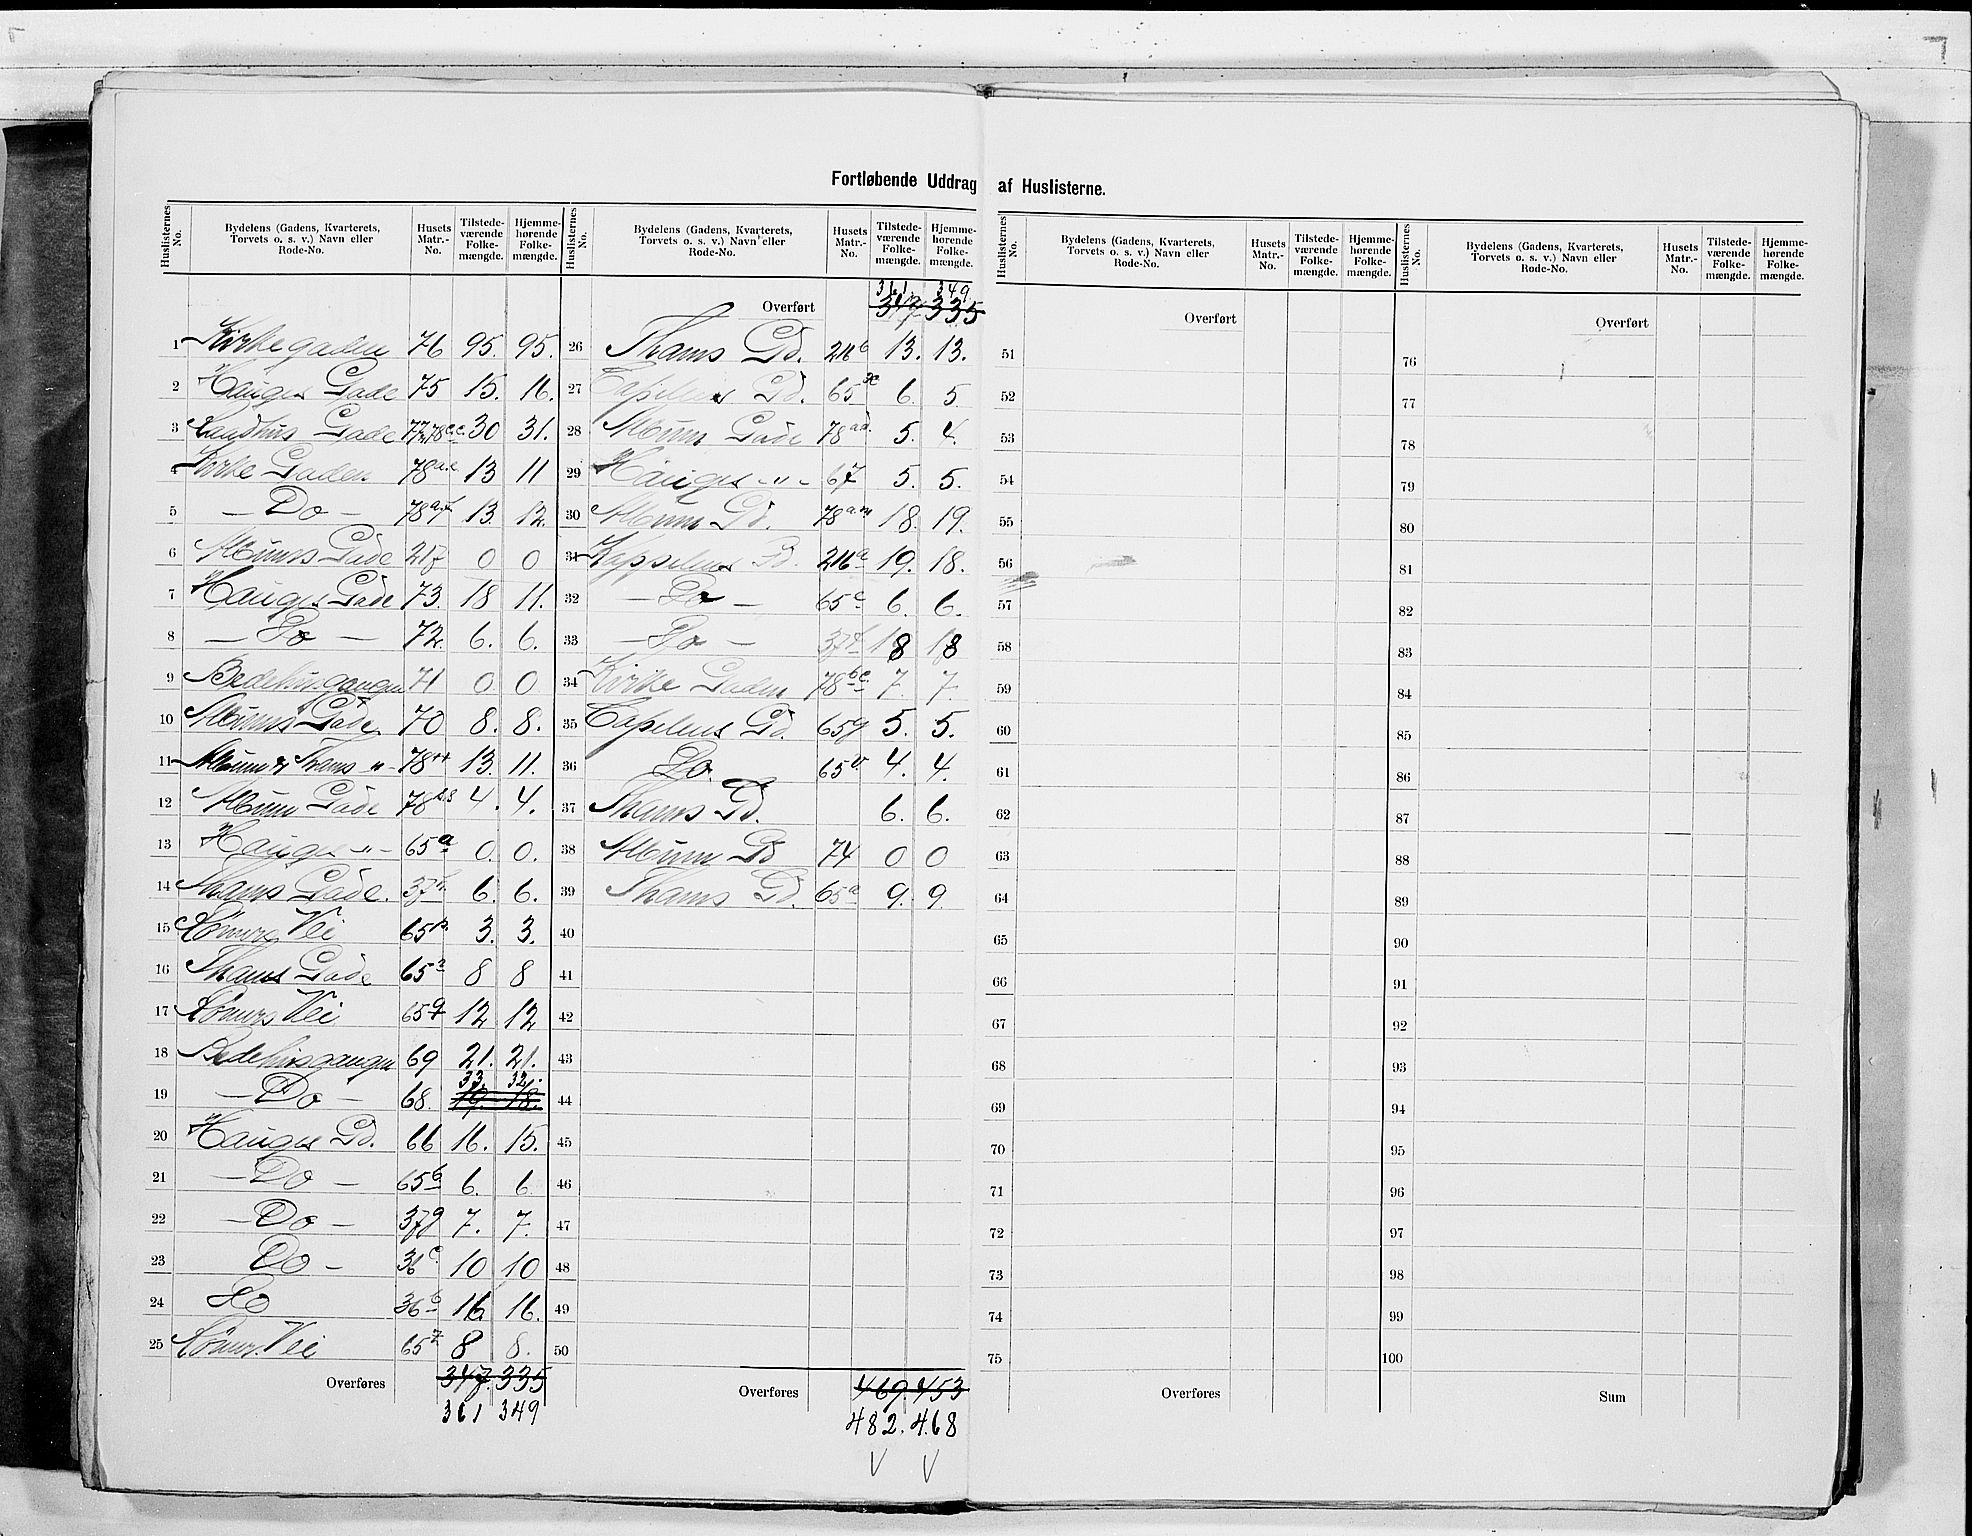 Fortløbende Uddrag af Huslisterne.
Huslisternes No. Bydelens (Gadens, Kvarterets, Torvets o. s. v.) Navn eller Rode-No. Husets Matr.-No. Tilstedeværende Folkemængde. Hjemmehørende Folkemængde.
1 Kirkegaden 76 95. 95.
2 Hauges Gade 75 15. 16.
3 Gade 30 31.
4 Kirke Gaden 78 a.e. 13 11
5 — Do — 78 13. 12.
6 Gade 217 0 0
7 Hauges Gade 73. 18 11.
8 — Do — 72. 6. 6.
9 Bedehusgangen 71 0 0
10 Gade 70 8. 8.
11 & Thams -"- 78 13. 11.
12 Gade 78 4. 4.
13 Hauges -"- 65a 0. 0.
14 Thams Gade. 37 6. 6.
15 Vei 65 3. 3.
16 Thams Gade 65 8 8
17 Vei 65q 12 12
18 Bedehusgangen 69 21. 21.
19 — Do — 68. 33. 32. 19. 18.
20 Hauges Gd. 66 16. 15.
21 — Do — 65b 6. 6.
22 — Do — 37g 7. 7.
23 Do — 36c. 10 10
24 Do 36b 16. 16.
25 Vei 65 8 8.
Overføres 347. 335
361 349
Huslisternes No. Bydelens (Gadens, Kvarterets, Torvets o. s. v.) Navn eller Rode-No. Husets Matr.-No. Tilstedeværende Folkemængde. Hjemmehørende Folkemængde.
361. 349
Overført 347 335
26 Thams Gd. 216b 13. 13.
27 Capelens Gd. 65 6. 5.
28 Gade 78 ad. 5. 4.
29 Hauges -"- 67 5. 5.
30 Gd. 78 a.m 18. 19.
31 Kappelens Gd. 216a 19. 18.
32 — Do — 65c 6. 6.
33 — Do — 37f 18 18
34 Kirke Gaden 78 bc. 7. 7.
35 Capelens Gd. 65g 5. 5.
36 Do. 65 4. 4.
37 Thams Gd. 6. 6.
38 Gd 74 0 0
39 Thams Gd. 65a 9. 9
40
41
42
43
44
45
46
47
48
49
50
Overføres 469. 453
482. 468
V V
Huslisternes No. Bydelens (Gadens, Kvarterets, Torvets o. s. v.) Navn eller Rode-No. Husets Matr.-No. Tilstedeværende Folkemængde. Hjemmehørende Folkemængde.
Overført
51
52
53
54
55
56
57
58
59
60
61
62
63
64
65
66
67
68
69
70
71
72
73
74
75
Overføres
Huslisternes No. Bydelens (Gadens, Kvarterets, Torvets o. s. v.) Navn eller Rode-No. Husets Matr.-No. Tilstedeværende Folkemængde. Hjemmehørende Folkemængde.
Overført
76
77
78
79
80
81
82
83
84
85
86
87
88
89
90
91
92
93
94
95
96
97
98
99
100
Sum